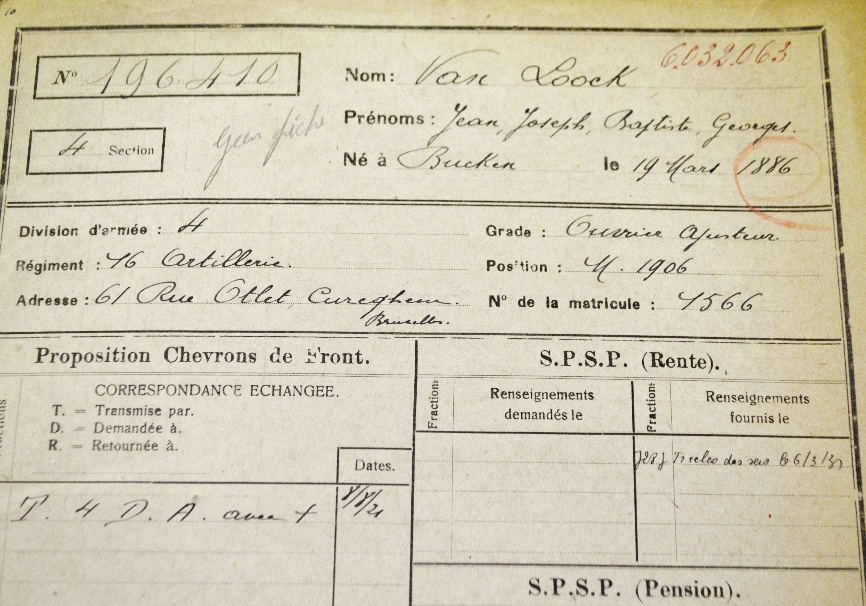 Nº 196410
6.032.063
Nom: Van Loock
4 Section
Prénoms: Jean, Joseph, Baptiste, Georges.
Né à Bucken le 19 Mars 1886
Division d'armée : 4
Grade : Ouvrier Ajusteur
Régiment : 16 Artillerie.
Position : M. 1906
Adresse : 61 Rue Otlet, Cureghem.
Bruxelles.
Nº de la matricule : 1566
Proposition Chevrons de Front.
S.P.S.P. (Rente).
CORRESPONDANCE ECHANGEE.
T. = Transmise par.
D. = Demandée à.
R. = Retournée à.
Dates.
Fractions
Renseignements
demandés le
Fractions
Renseignements
fournis le
T. 4 D. A. avec +
8/8/21
S.P.S.P. (Pension).